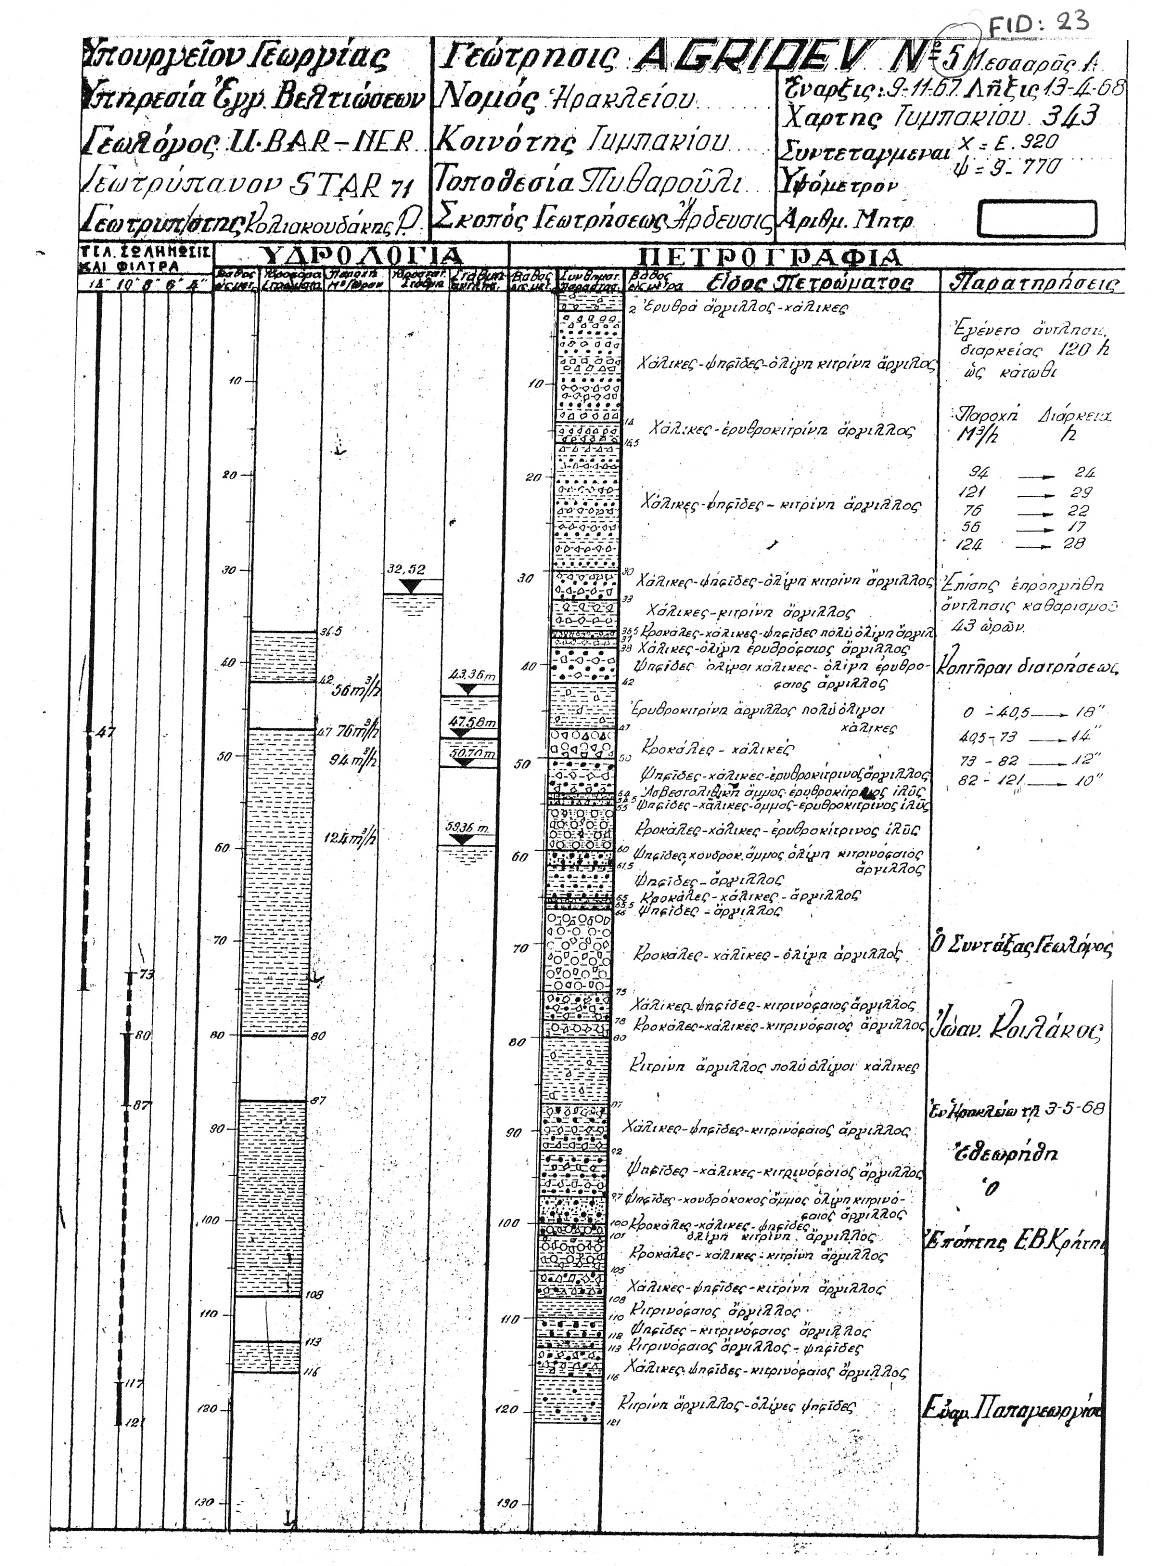 FID: 23
Ὑπουργεῖον Γεωργίας
Ὑπηρεσία Ἐγγ. Βελτιώσεων
Γεωλόγος U. BAR-NER
Γεωτρύπανον STAR 71
Γεωτρυπ/στης Κολιακουδάκης Ρ.
Γεώτρησις AGRIDEV Nº 5 Μεσσαρᾶς Α
Νομός Ἡρακλείου
Κοινότης Τυμπακίου
Τοποθεσία Πυθαροῦλι
Σκοπός Γεωτρήσεως Ἄρδευσις
Ἔναρξις: 9-11-67 Λῆξις 13-4-68
Χάρτης Τυμπακίου 343
Συντεταγμεναι Χ = Ε. 920
Ψ = 9- 770
Ὑψόμετρον
Ἀριθμ. Μητρ.
ΤΕΛ. ΣΩΛΗΝΩΣΙΣ ΚΑΙ ΦΙΛΤΡΑ
ΥΔΡΟΛΟΓΙΑ
ΠΕΤΡΟΓΡΑΦΙΑ
14" 10" 8" 6" 4"
Εἶδος Πετρώματος
Παρατηρήσεις
2 Ἐρυθρά ἄργιλλος-χάλικες
Χάλικες-ψηφῖδες-ὀλίγη κιτρίνη ἄργιλλος
10
10
14
Χάλικες-ἐρυθροκιτρίνη ἄργιλλος
16,5
20
20
Χάλικες-ψηφῖδες-κιτρίνη ἄργιλλος
30
30
30
32,52
Χάλικες-ψηφῖδες-ὀλίγη κιτρίνη ἄργιλλος
33
Χάλικες-κιτρίνη ἄργιλλος
36.5
36,5 Κροκάλες-χάλικες-ψηφῖδες πολύ ὀλίγη ἄργιλ.
37
38 Χάλικες-ὀλίγη ἐρυθρόφαιος ἄργιλλος
40
40
Ψηφῖδες ὀλίγοι χάλικες-ὀλίγη ἐρυθρο-
φαιος ἄργιλλος
42
42
56 m³/h
43,36 m
Ἐρυθροκιτρίνη ἄργιλλος πολύ ὀλίγοι
χάλικες
47
47 76 m³/h
47,58 m
47
50
50
50
Κροκάλες - χάλικες
94 m³/h
50,70 m
Ψηφῖδες-χάλικες-ἐρυθροκίτρινος ἄργιλλος
54 Ἀσβεστολιθική ἄμμος ἐρυθροκίτρινος ἰλύς
54.5
55 Ψηφῖδες-χάλικες-ἄμμος-ἐρυθροκίτρινος ἰλύς
124 m³/h
59,36 m
Κροκάλες-χάλικες-ἐρυθροκίτρινος ἰλύς
60
60
60 Ψηφῖδες, χονδροκ. ἄμμος ὀλίγη κιτρινόφαιος
ἄργιλλος
61.5
Ψηφῖδες - ἄργιλλος
65 Κροκάλες-χάλικες-ἄργιλλος
65.5
66 Ψηφῖδες-ἄργιλλος
70
70
Κροκάλες-χάλικες-ὀλίγη ἄργιλλος
73
75
Χάλικες-ψηφῖδες-κιτρινόφαιος ἄργιλλος
78 Κροκάλες-χάλικες-κιτρινόφαιος ἄργιλλος
80
80
80
80
80
Κιτρίνη ἄργιλλος πολύ ὀλίγοι χάλικες
87
87
87
90
90
Χάλικες-ψηφῖδες-κιτρινόφαιος ἄργιλλος
92
Ψηφῖδες-χάλικες-κιτρινόφαιος ἄργιλλος
97 Ψηφῖδες-χονδρόκοκος ἄμμος ὀλίγη κιτρινό-
φαιος ἄργιλλος
100
100
100 Κροκάλες-χάλικες-ψηφῖδες
101 ὀλίγη κιτρίνη ἄργιλλος
Κροκάλες-χάλικες-κιτρίνη ἄργιλλος
105
Χάλικες-ψηφῖδες-κιτρίνη ἄργιλλος
108
108
110
110
110 Κιτρινόφαιος ἄργιλλος
Ψηφῖδες-κιτρινόφαιος ἄργιλλος
112
113
113 Κιτρινόφαιος ἄργιλλος-ψηφῖδες
Χάλικες-ψηφῖδες-κιτρινόφαιος ἄργιλλος
116
116
117
120
120
121
Κιτρίνη ἄργιλλος-ὀλίγες ψηφῖδες
121
130
130
Ἐγένετο ἄντλησις
διαρκείας 120 h
ὡς κάτωθι
Παροχή Διάρκεια
M³/h h
94 → 24
121 → 29
76 → 22
56 → 17
124 → 28
Ἐπίσης ἐπροηγήθη
ἄντλησις καθαρισμοῦ
43 ὡρῶν.
Κοπτῆραι διατρήσεως
0 - 40,5 → 18"
40,5 - 73 → 14"
73 - 82 → 12"
82 - 121 → 10"
Ὁ Συντάξας Γεωλόγος
Ἰωαν. Κοιλάκος
Ἐν Ἡρακλείῳ τῇ 3-5-68
Ἐθεωρήθη
Ὁ
Ἐπόπτης Ε.Β. Κρήτης
Εὐαγ. Παπαγεωργίου